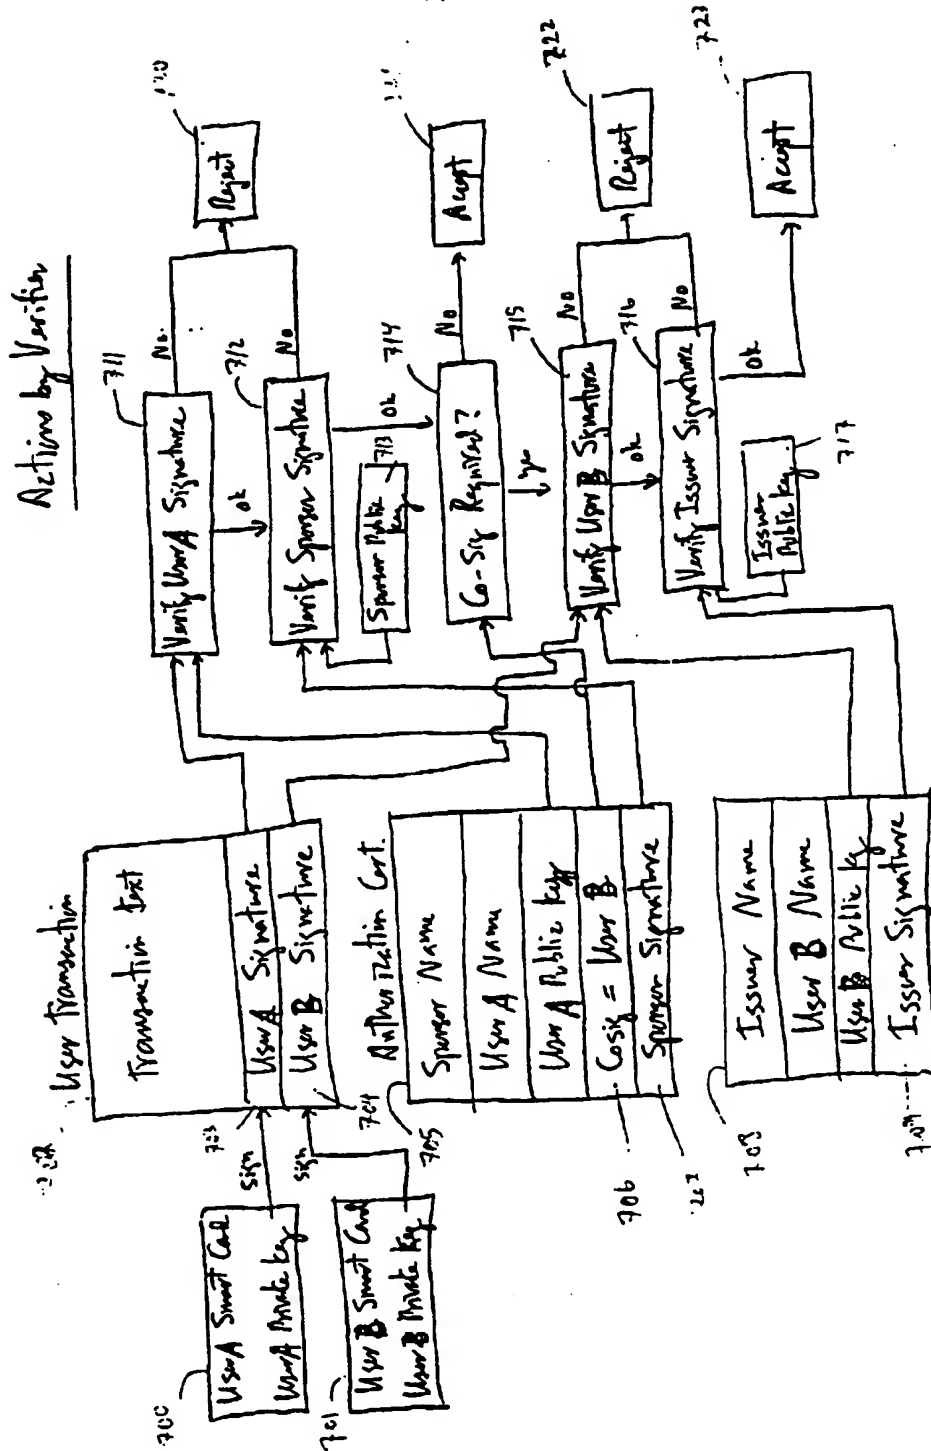 Actions by Verifier
700
User A Smart Card
User A Private Key
701
User B Smart Card
User B Private Key
Sign
Sign
User Transaction
Transaction Text
703
User A Signature
User B Signature
704
Authorization Cert.
705
Sponsor Name
User A Name
User A Public Key
Cosig = User B
706
Sponsor Signature
708
Issuer Name
User B Name
User B Public Key
Issuer Signature
711
Verify User A Signature
No.
ok
712
Verify Sponsor Signature
No
ok
Sponsor Public Key
713
714
Co-Sig Required?
No
yes
715
Verify User B Signature
No
ok
716
Verify Issuer Signature
No
ok
Issuer Public Key
717
Reject
Accept
722
Reject
723
Accept